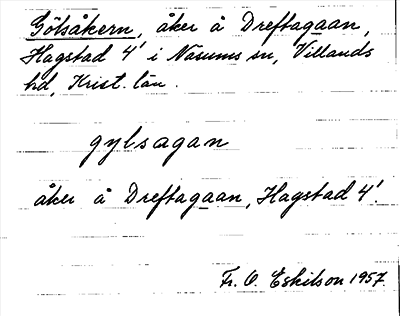 Gölsåkern, åker å Dreftagaan,
Hagstad 4' i Näsums sn, Villands
hd, Krist. län.
gylsagan
åker å Dreftagaan, Hagstad 4'.
Fr. O. Eskilson 1957